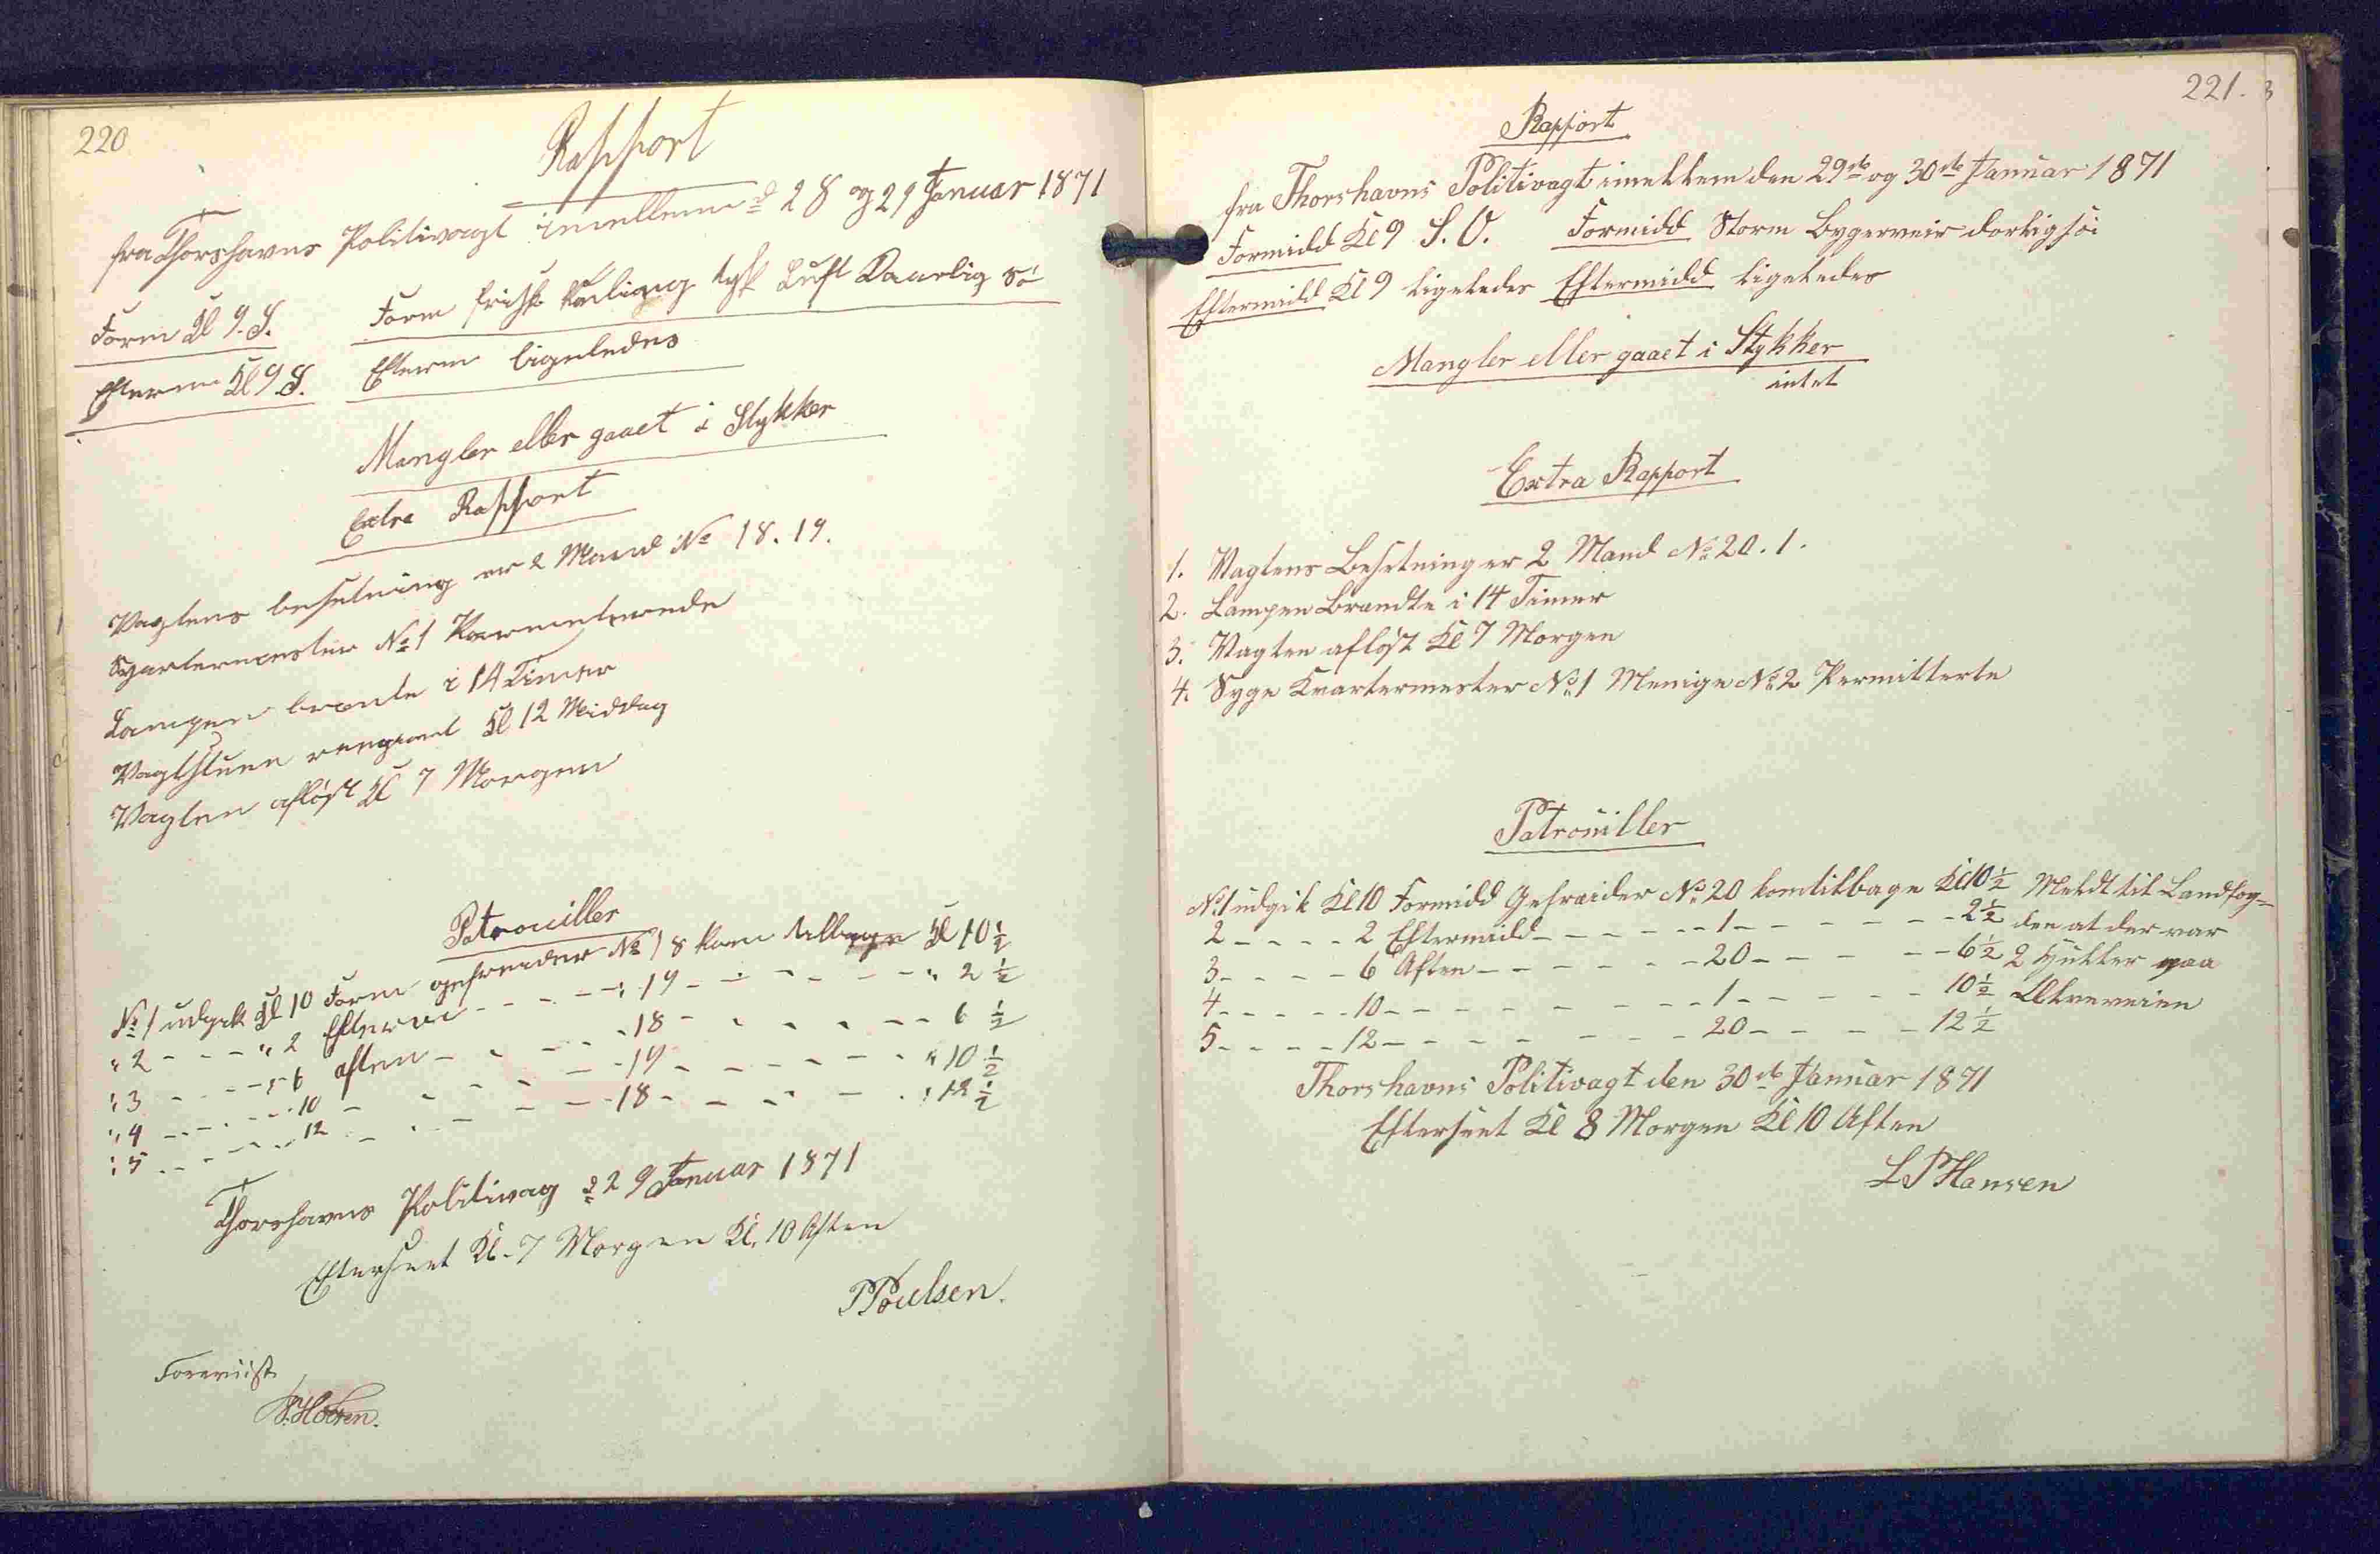 220
Rapport
fra Thorshavns Politivagt imellem d 28 og 29 Januar 1871
Form Kl 9. S. Form frisk Kuling tyk Luft Daarlig Sö
Efterm Kl 9 S. Efterm ligeledes
Mangler eller gaaet i Stykker
Extra Rapport
Vagtens besetning er 2 Mand No 18. 19.
No 1
Lampen brante i 14 Timer
Vagtstuen rengjort Kl 12 Middag
Vagten afløst Kl 7 Morgen
Patrouiller
No 1 udgik Kl 10 Form gefreider No 18 kom tilbage Kl 10 1/2
" 2 - - - " 2 Efterm - - - - - 19 - - - - - " 2 1/2
" 3 - - - - 6 aften - - - - - 18 - - - - - 6 1/2
" 4 - - - - 10 - - - - - - 19 - - - - - " 10 1/2
" 5 - - - - 12 - - - - - - 18 - - - - - " 12 1/2
Thorshavns Politivag d 29 Januar 1871
Efterseet Kl. 7 Morgen Kl. 10 Aften
PPoulsen.
Forevist
221.
Rapport
fra Thorshavns Politivagt imellem den 29de og 30de Januar 1871
Formidd Kl 9 S. O. Formidd Storm Bygerveir dorligsöi
Eftermidd Kl 9 ligeledes Eftermidd ligeledes
Mangler eller gaaet i Stykker
intet
Extra Rapport
1. Vagtens Besetning er 2 Mand No 20. 1.
2. Lampen Brandte i 14 Timer
3. Vagten afløst Kl 7 Morgen
4. Syge Kvartermester No 1 Menige No 2 Permitterte
Patrouiller
No 1 udgik Kl 10 Formidd Gefreider No 20 kom tilbage Kl 10 1/2 Meldt til Landfog=
2 - - - - 2 Eftermidd - - - - - 1 - - - - - 2 1/2 den at der var
3 - - - - 6 Aften - - - - - 20 - - - - - 6 1/2 2 Huller paa
4 - - - - 10 - - - - - - 1 - - - - - 10 1/2
5 - - - - 12 - - - - - - 20 - - - - 12 1/2
Thorshavns Politivagt den 30de Januar 1871
Efterseet Kl 8 Morgen Kl 10 Aften
LPHansen